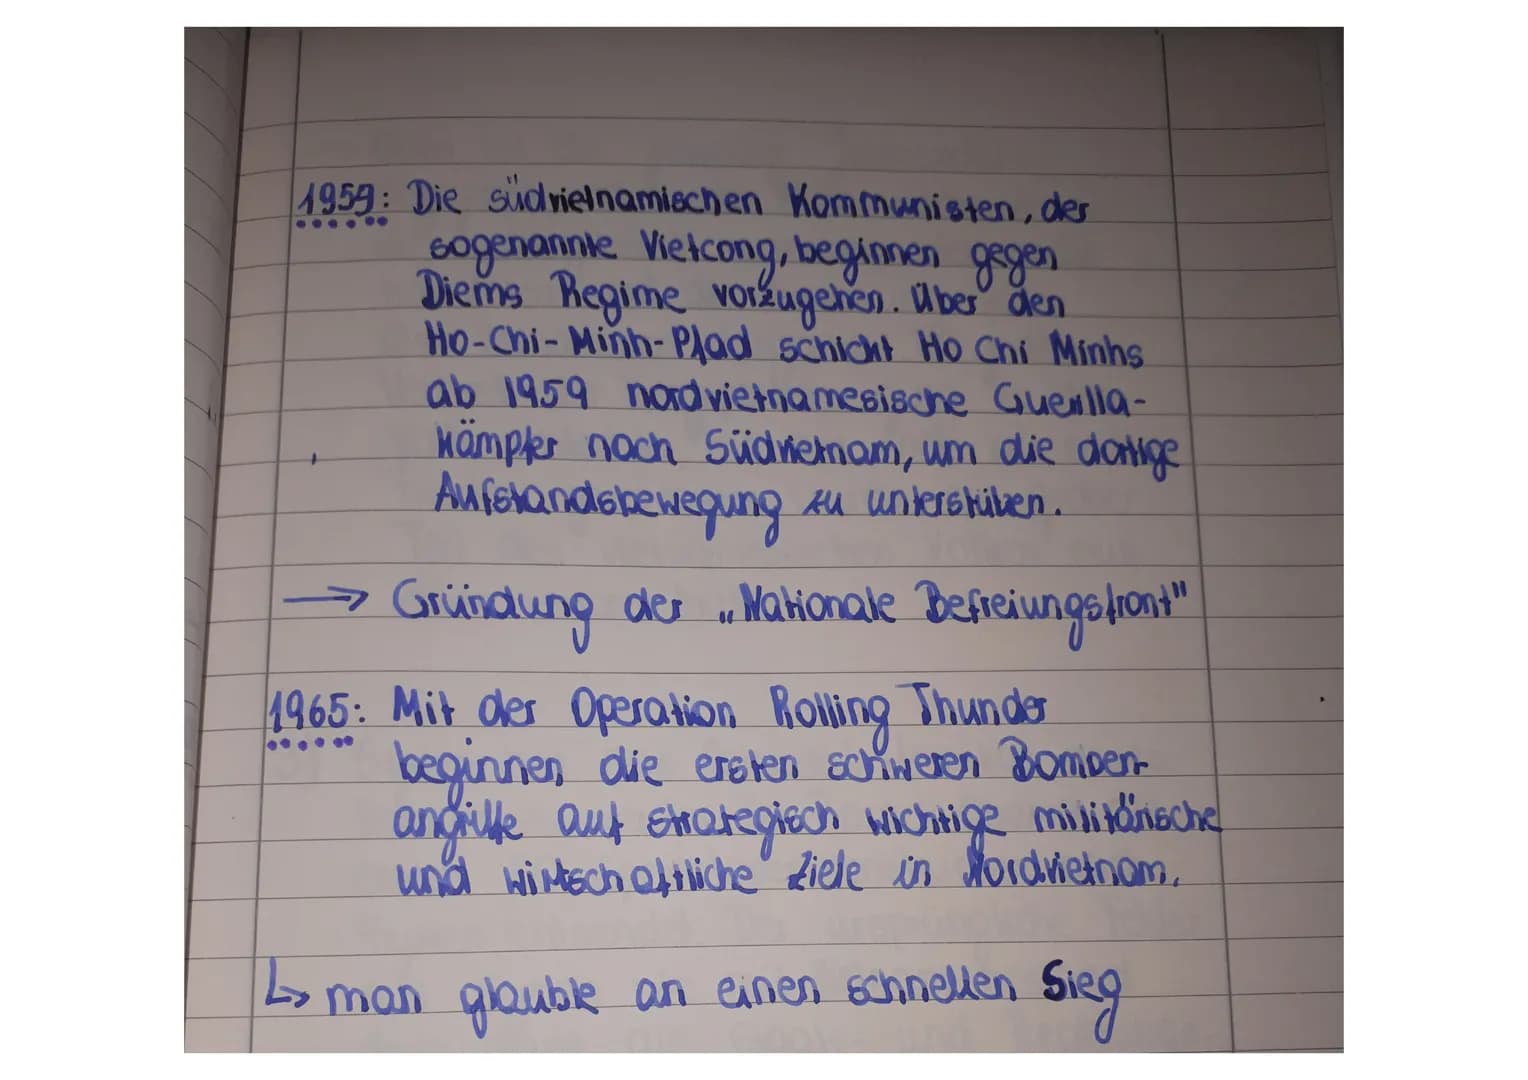 1959: Die südvietnamischen Kommunisten, der
sogenannte Vietcong, beginnen gegen
Diems Regime vorzugehen. Über den
Ho-Chi-Minh-Pfad schickt Ho Chi Minhs
ab 1959 nordvietnamesische Guerilla-
kämpfer nach Südvietnam, um die dortige
Aufstandsbewegung zu unterstützen.
→ Gründung der „Nationale Befreiungsfront"
1965: Mit der Operation Rolling Thunder
beginnen die ersten schweren Bomben-
angriffe auf strategisch wichtige militärische
und wirtschaftliche Ziele in Nordvietnam.
↳ man glaubte an einen schnellen Sieg